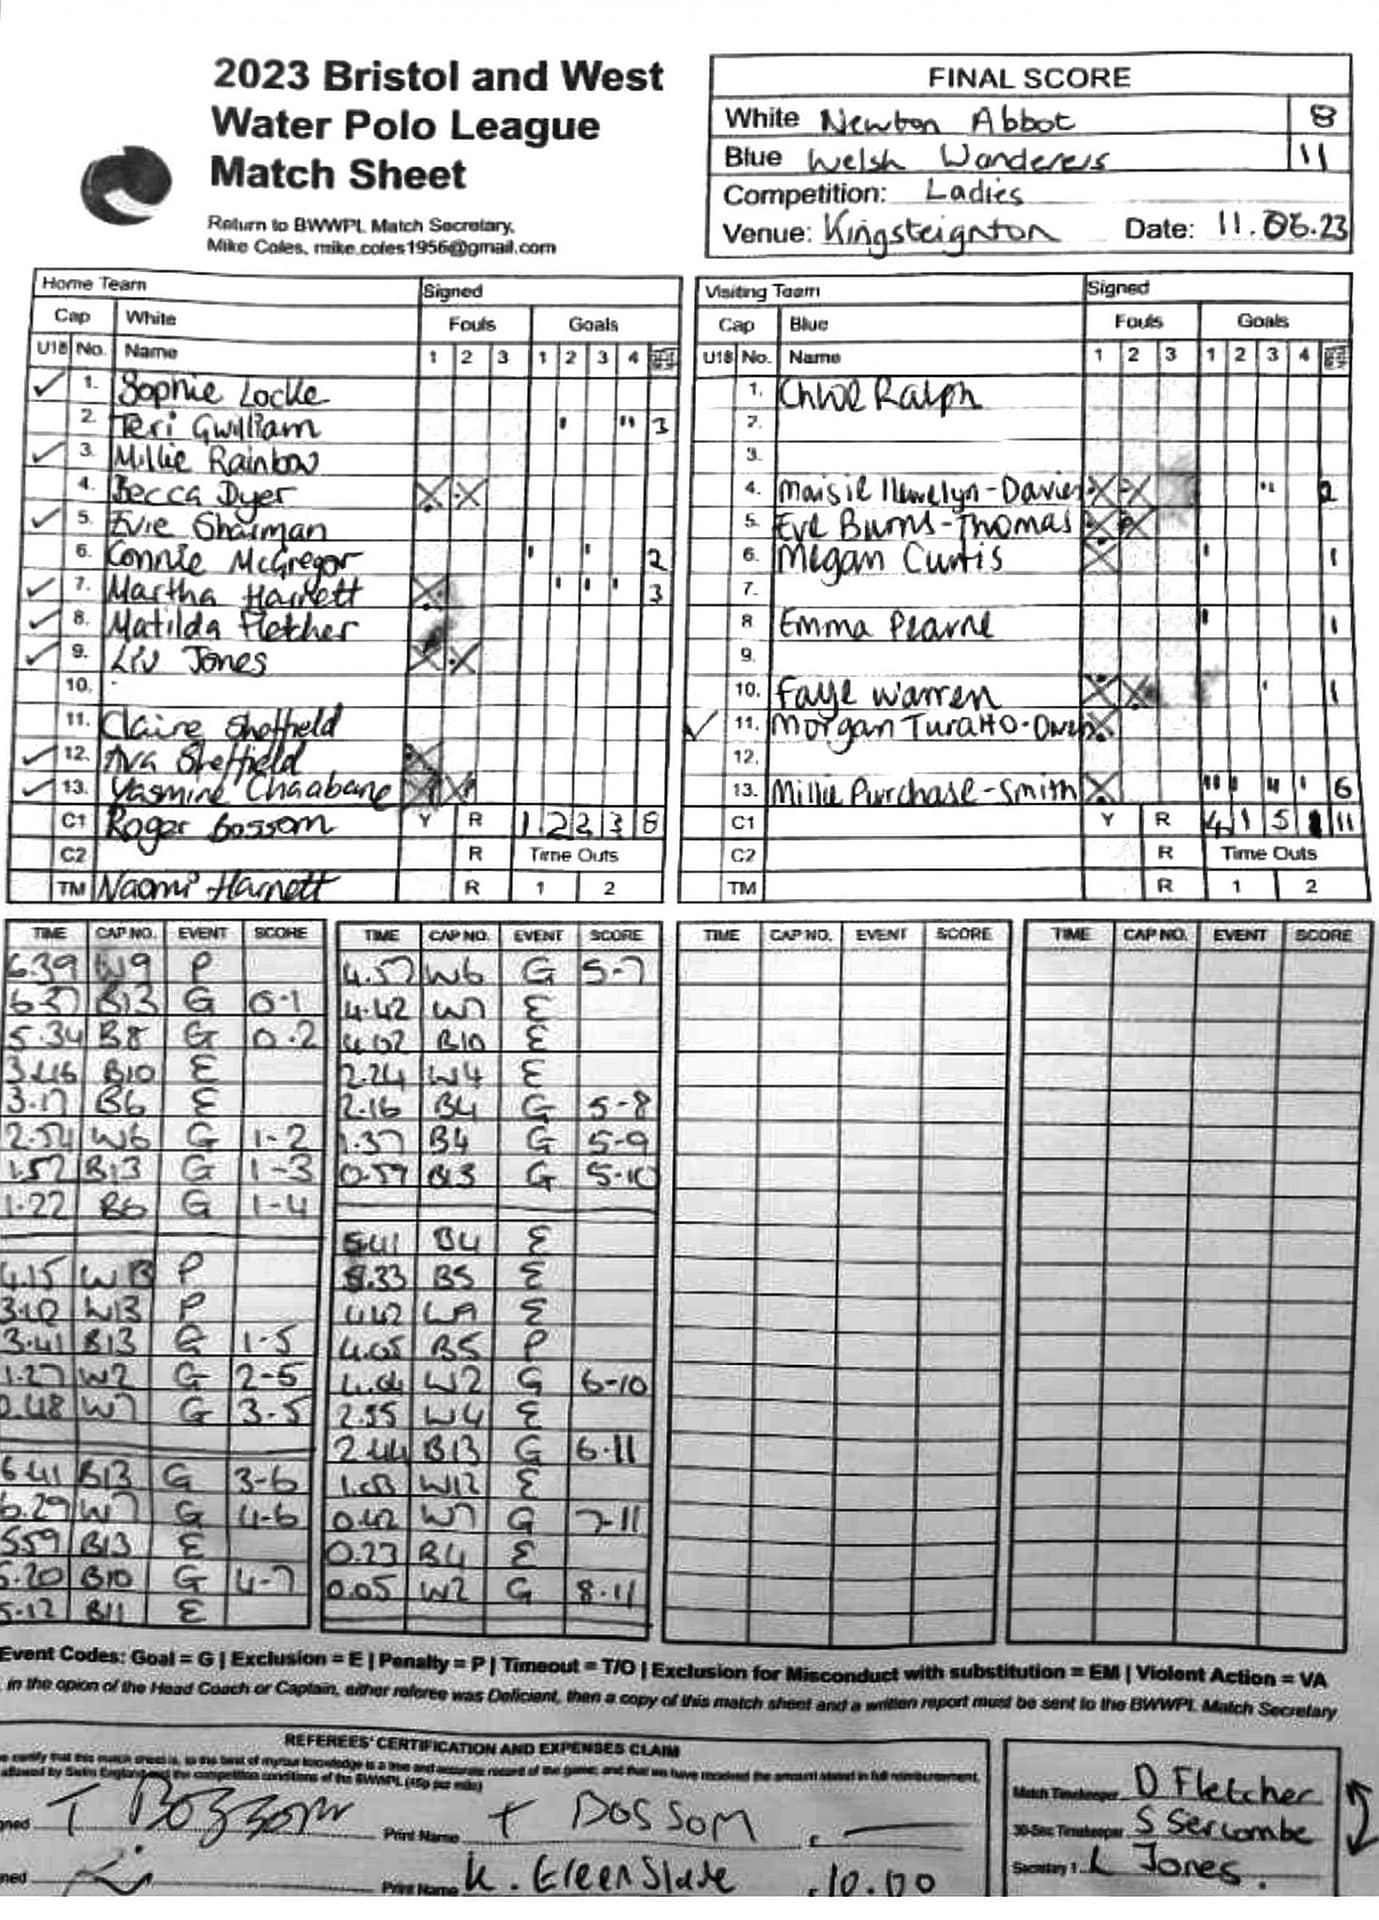 2023 Bristol and West
Water Polo League
Match Sheet
Return to BWWPL Match Secretary,
Mike Coles, mike.coles1956@gmail.com
FINAL SCORE
White Newton Abbot 8
Blue Welsh Wanderers 11
Competition: Ladies
Venue: Kingsteignton Date: 11.06.23
Home Team Signed
Cap White Fouls Goals
U18 No. Name 1 2 3 1 2 3 4
✓ 1. Sophie Locke
2. Teri Gwilliam ' '' 3
✓ 3. Millie Rainbow
4. Becca Dyer X X
✓ 5. Evie Sharman
6. Connie McGregor ' ' 2
✓ 7. Martha Harnett X ' ' ' 3
✓ 8. Matilda Fletcher
✓ 9. Liv Jones X X
10.
11. Claire Sheffield
✓ 12. Ava Sheffield X
✓ 13. Yasmine Chaabane X X
C1 Roger Bossom Y R 1 2 2 3 8
C2 R Time Outs
TM Naomi Harnett R 1 2
Visiting Team Signed
Cap Blue Fouls Goals
U18 No. Name 1 2 3 1 2 3 4
1. Chloe Ralph
2.
3.
4. Maisie Llewelyn-Davies X X '' 2
5. Eve Burns-Thomas X X
6. Megan Curtis X ' 1
7.
8 Emma Pearne ' 1
9.
10. Faye Warren X X ' 1
✓ 11. Morgan Turatto-Owen X
12.
13. Millie Purchase-Smith X '' ' '' ' 6
C1 Y R 4 1 5 1 11
C2 R Time Outs
TM R 1 2
TIME CAP NO. EVENT SCORE
6.39 W9 P
6.37 B13 G 0-1
5.34 B8 G 0.2
3.46 B10 E
3.17 B6 E
2.54 W6 G 1-2
1.57 B13 G 1-3
1.22 B6 G 1-4
4.15 W13 P
W13 P
3.41 B13 G 1-5
1.27 W2 G 2-5
0.48 W7 G 3.5
6.41 B13 G 3-6
6.29 W7 G 4-6
5.59 B13 E
5.20 B10 G 4-7
5.12 B11 E
TIME CAP NO. EVENT SCORE
4.57 W6 G 5-7
4.42 W7 E
4.02 B10 E
2.24 W4 E
2.16 B4 G 5-8
1.37 B4 G 5-9
0.57 B13 G 5-10
5.41 B4 E
B5 E
E
4.05 B5 P
W2 G 6-10
2.55 W4 E
2.44 B13 G 6-11
W12 E
0.42 W7 G 7-11
0.23 B4 E
0.05 W2 G 8-11
TIME CAP NO. EVENT SCORE
TIME CAP NO. EVENT SCORE
Event Codes: Goal = G | Exclusion = E | Penalty = P | Timeout = T/O | Exclusion for Misconduct with substitution = EM | Violent Action = VA
in the opion of the Head Coach or Captain, either referee was Deficient, then a copy of this match sheet and a written report must be sent to the BWWPL Match Secretary
REFEREES' CERTIFICATION AND EXPENSES CLAIM
certify that this match sheet is, to the best of my/our knowledge is a true and accurate record of the game; and that we have received the amount stated in full reimbursement,
allowed by Swim England and the competition conditions of the BWWPL (45p per mile)
T Bossom Print Name T BOSSOM £ —
Print Name K. Greenslade £10.00
Match Timekeeper D Fletcher
30-Sec Timekeeper S Sercombe
Secretary 1 L Jones.